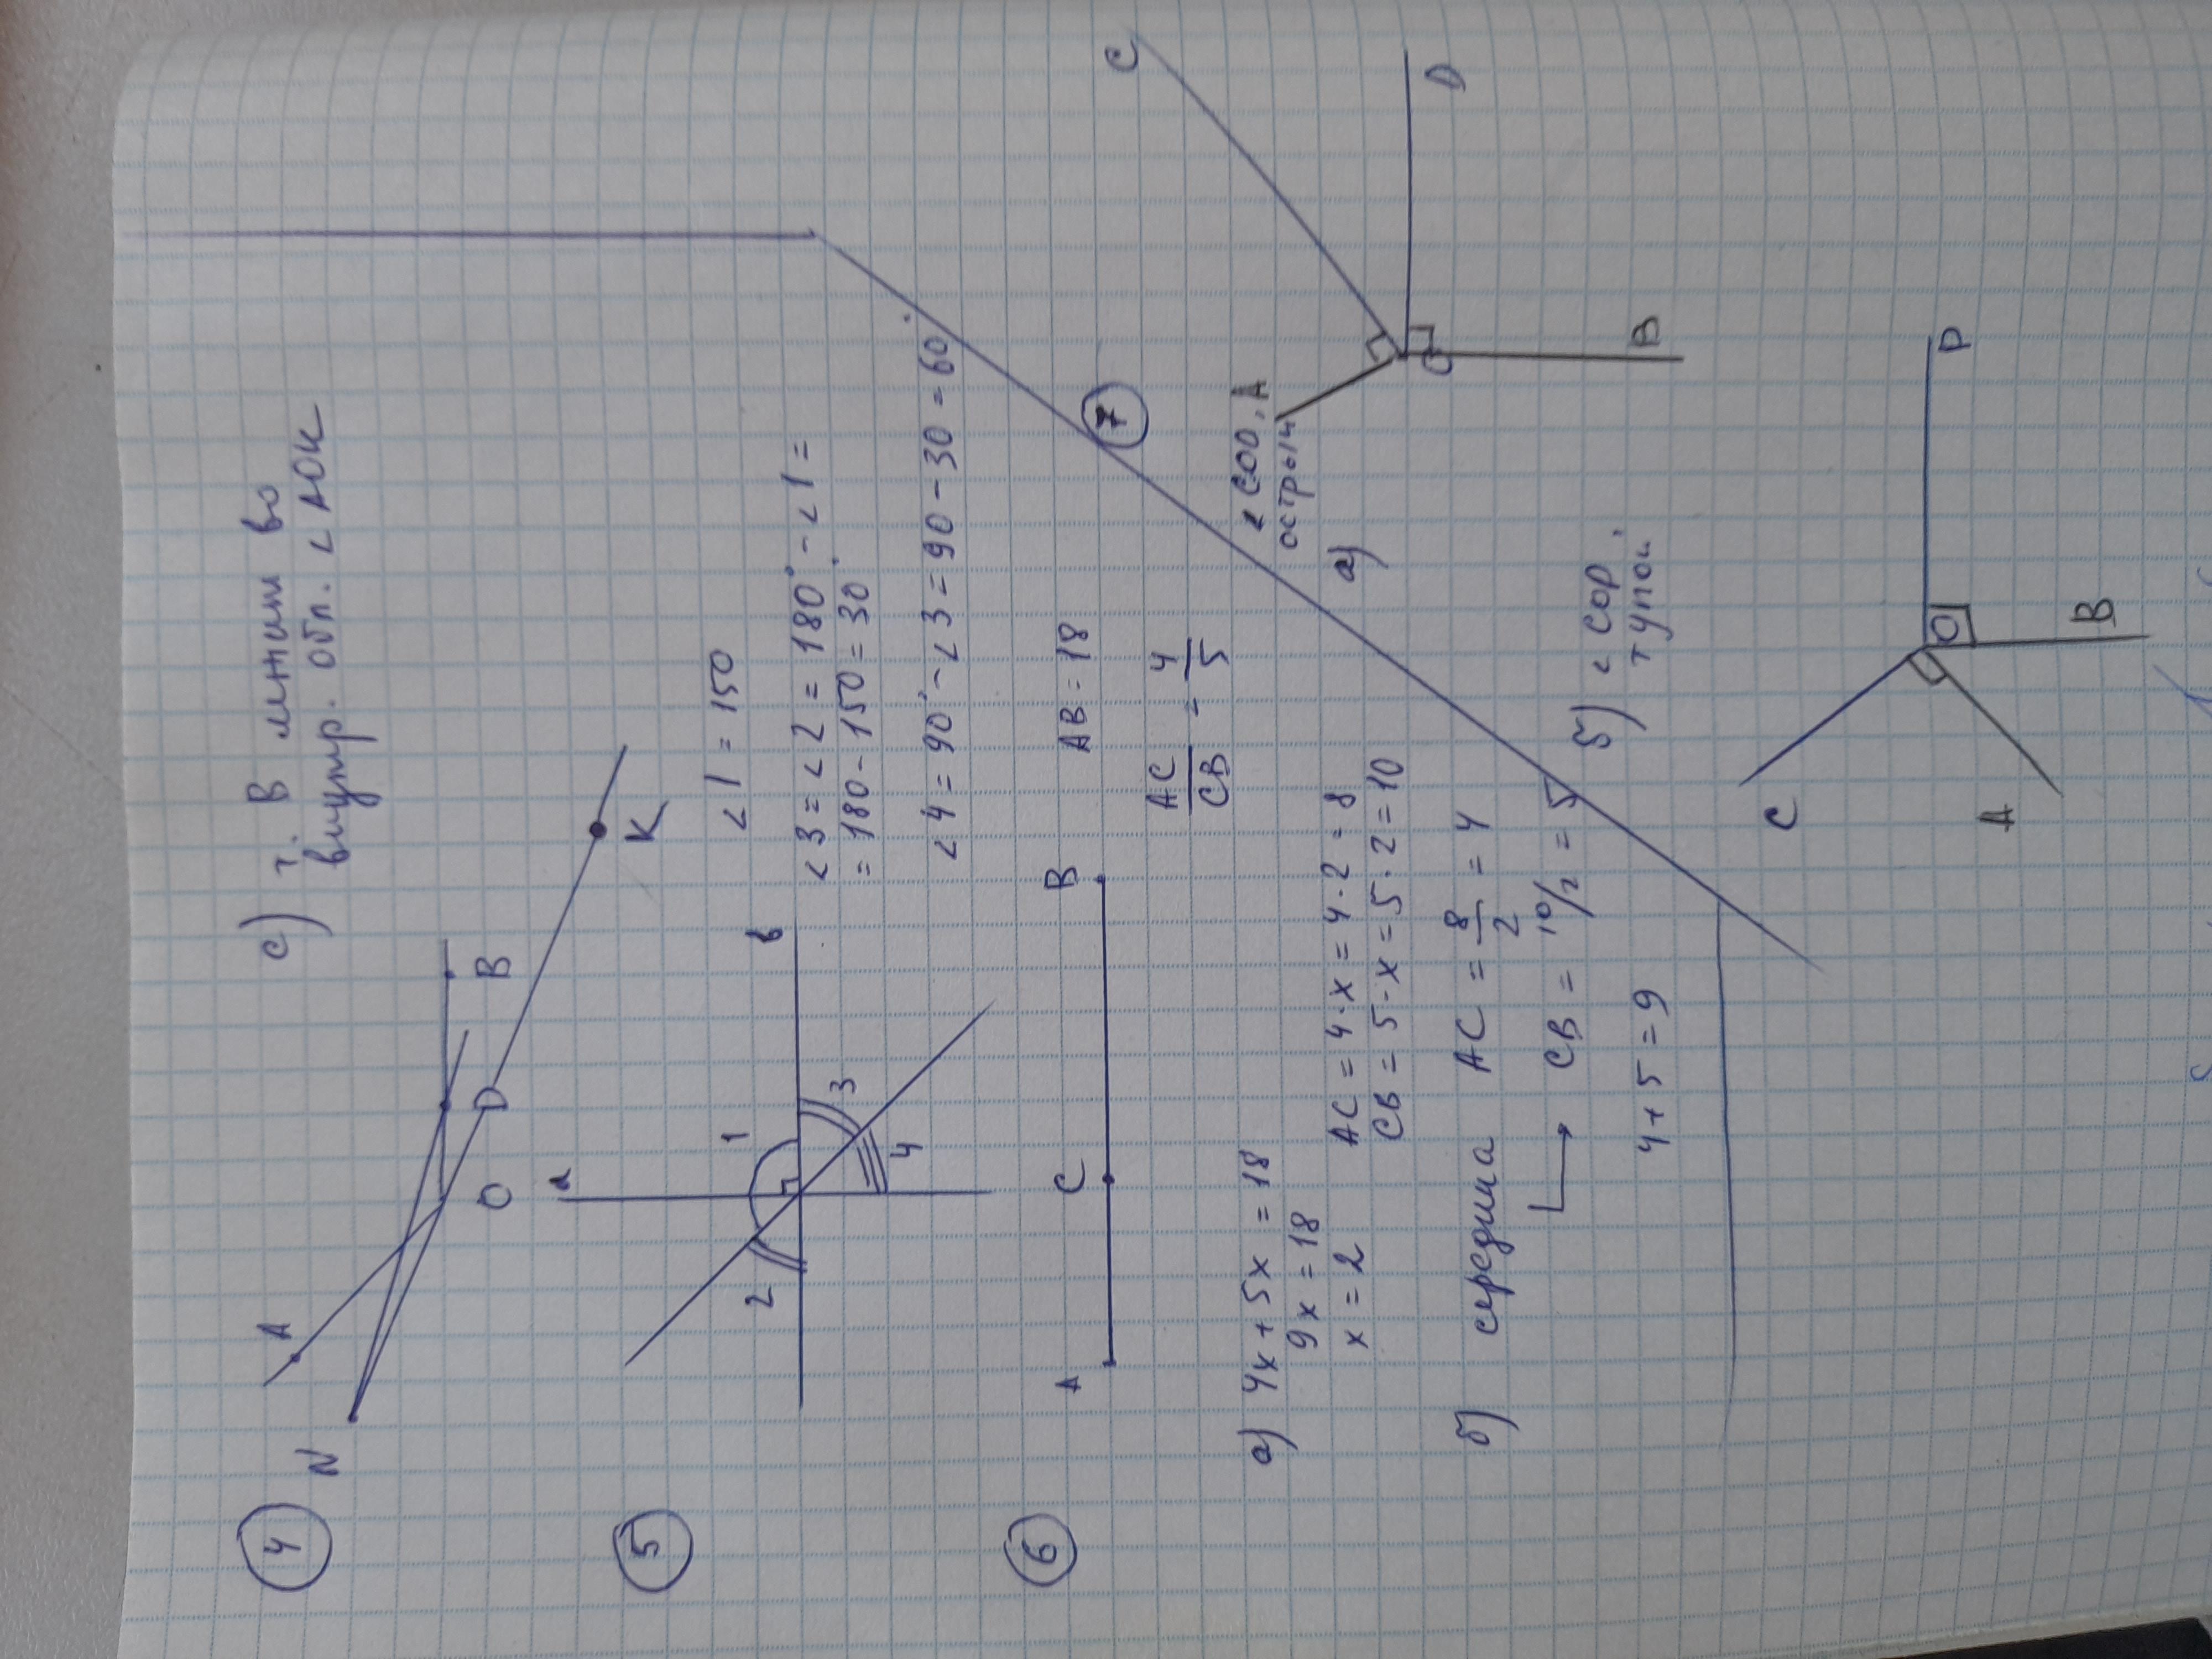 4
N
A
O
D
B
K
с) т. В лежит во
внутр. обл. ∠ AOK
5
a
b
1
2
3
4
∠1 = 150
∠3 = ∠2 = 180° - ∠1 =
= 180 - 150 = 30°
∠4 = 90° - ∠3 = 90 - 30 = 60°
6
A
C
B
AB = 18
AC/CB = 4/5
а) 4x + 5x = 18
9x = 18
x = 2
AC = 4·x = 4·2 = 8
CB = 5·x = 5·2 = 10
б) середина AC = 8/2 = 4
CB = 10/2 = 5
4 + 5 = 9
7
∠ COD,
острый
а)
A
C
O
D
B
б) ∠ COP,
тупой
C
A
O
P
B